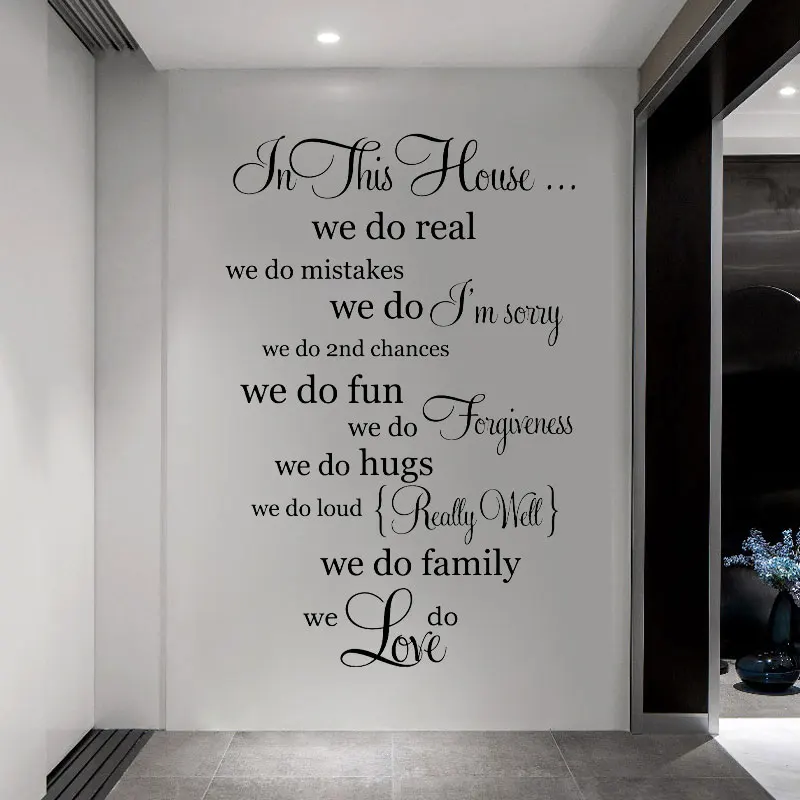 In This House ...
we do real
we do mistakes
we do I'm sorry
we do 2nd chances
we do fun
we do Forgiveness
we do hugs
we do loud {Really Well}
we do family
we Love do